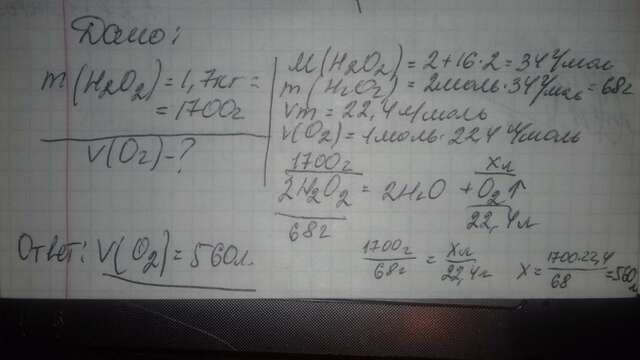 Дано:
m(H₂O₂) = 1,7кг =
= 1700г
V(O₂) - ?
M(H₂O₂) = 2+16·2 = 34 г/моль
m(H₂O₂) = 2моль·34 г/моль = 68г
Vm = 22,4 л/моль
V(O₂) = 1моль·22,4 л/моль
1700г xл
2H₂O₂ = 2H₂O + O₂↑
68г 22,4л
1700г/68г = xл/22,4л x = 1700·22,4/68 = 560л
Ответ: V(O₂) = 560л.